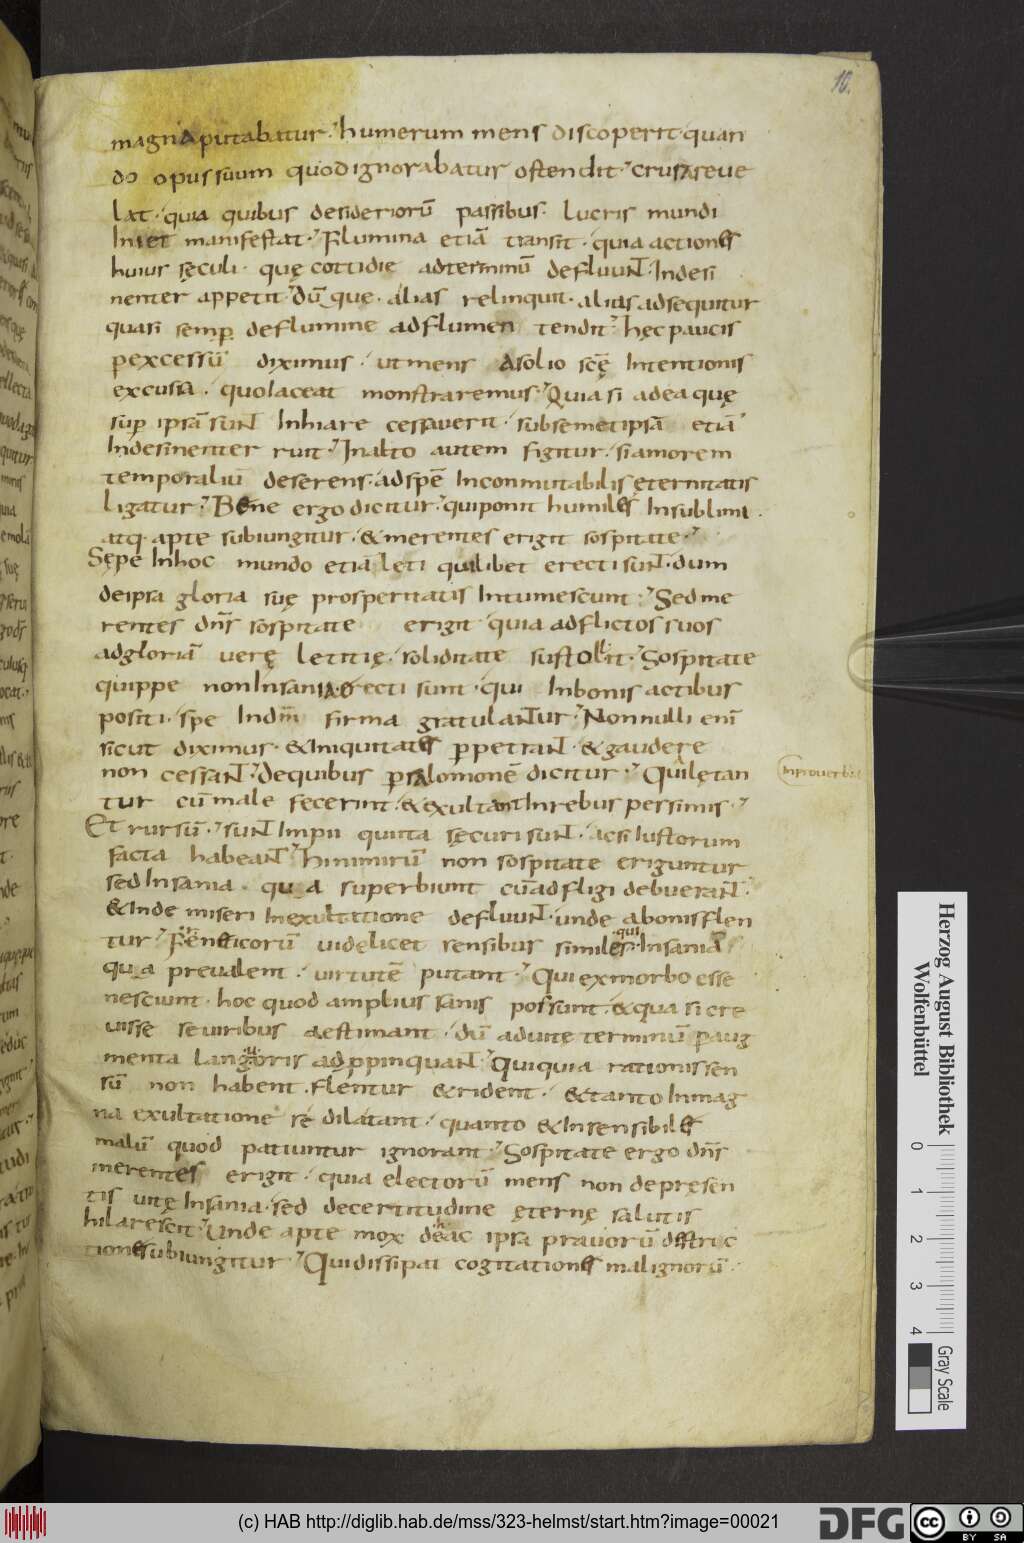 10.
magna putabatur. humerum mens discoperit. quan
do opus suum quod ignorabatur ostendit. crus reue
lat. quia quibus desideriorū passibus. lucris mundi
Iniet manifestat. Flumina etiā transit. quia actiones
huius sęculi. quę cottidie adterminū defluunt. Indesi
nenter appetit. Dū que. alias relinquit. alias adsequitur
quasi semp deflumine adflumen tendit. hęc paucis
pexcessū diximus. ut mens Asolio scę Intentionis
excussa. quo laceat monstraremus. Quia si adea quę
sup ipsā sunt Inhiare cessauerit. subsemetipsā etiā
Indesinenter ruit. In alto autem figitur. si amorem
temporaliū deserens. adspē Inconmutabilis ęternitatis
ligatur. Bene ergo dicitur. qui ponit humiles Insublimi.
atq. apte subiungitur. & merentes erigit sospitate.
Sępe Inhoc mundo etiā lęti quilibet erecti sunt. dum
deipsa gloria suę prosperitatis Intumescunt. Sed me
rentes dns sospitate erigit quia adflictos suos
adgloriā verę letitię. soliditate sustollit. Sospitate
quippe non Insania erecti sunt. qui Inbonis actibus
positi. spe Indm̄ firma gratulantur. Nonnulli enī
sicut diximus. & Iniquitates ppetrant. & gaudere
non cessant. De quibus p salomonē dicitur. Qui lętan
tur cū male fecerint. & exultant In rebus pessimis.
Inprouerbiis
Et rursū. sunt Impii quita sęcuri sunt. acsi Iustorum
facta habeant. hi nimirū non sospitate eriguntur
sed Insania. qua superbiunt cū adfligi debuerant.
& Inde miseri Inexultatione defluunt. unde abonis flen
tur. Freneticorū uidelicet sensibus similes. qui Insaniā
qua preualent. uirtutē putant. Qui ex morbo esse
nesciunt. hoc quod amplius sanis possunt. & quasi cre
uisse se uiribus aestimant. dū aduitę terminū p aug
menta languoris adppinquant. Qui quia rationis sen
sū non habent. flentur & rident. & tanto Inmag
na exultatione se dilatant. quanto & Insensibiles
malū quod patiuntur ignorant. Sospitate ergo dns
merentes erigit. quia electorū mens non de pręsen
tis uitę Insania. sed decertitudine ęternę salutis
hilarescit. Unde apte mox de hac ipsa prauorū destruc
tione subiungitur. Qui dissipat cogitationes malignorū.
Herzog August Bibliothek
Wolfenbüttel
0 1 2 3 4
Gray Scale
(c) HAB http://diglib.hab.de/mss/323-helmst/start.htm?image=00021
DFG
cc BY SA